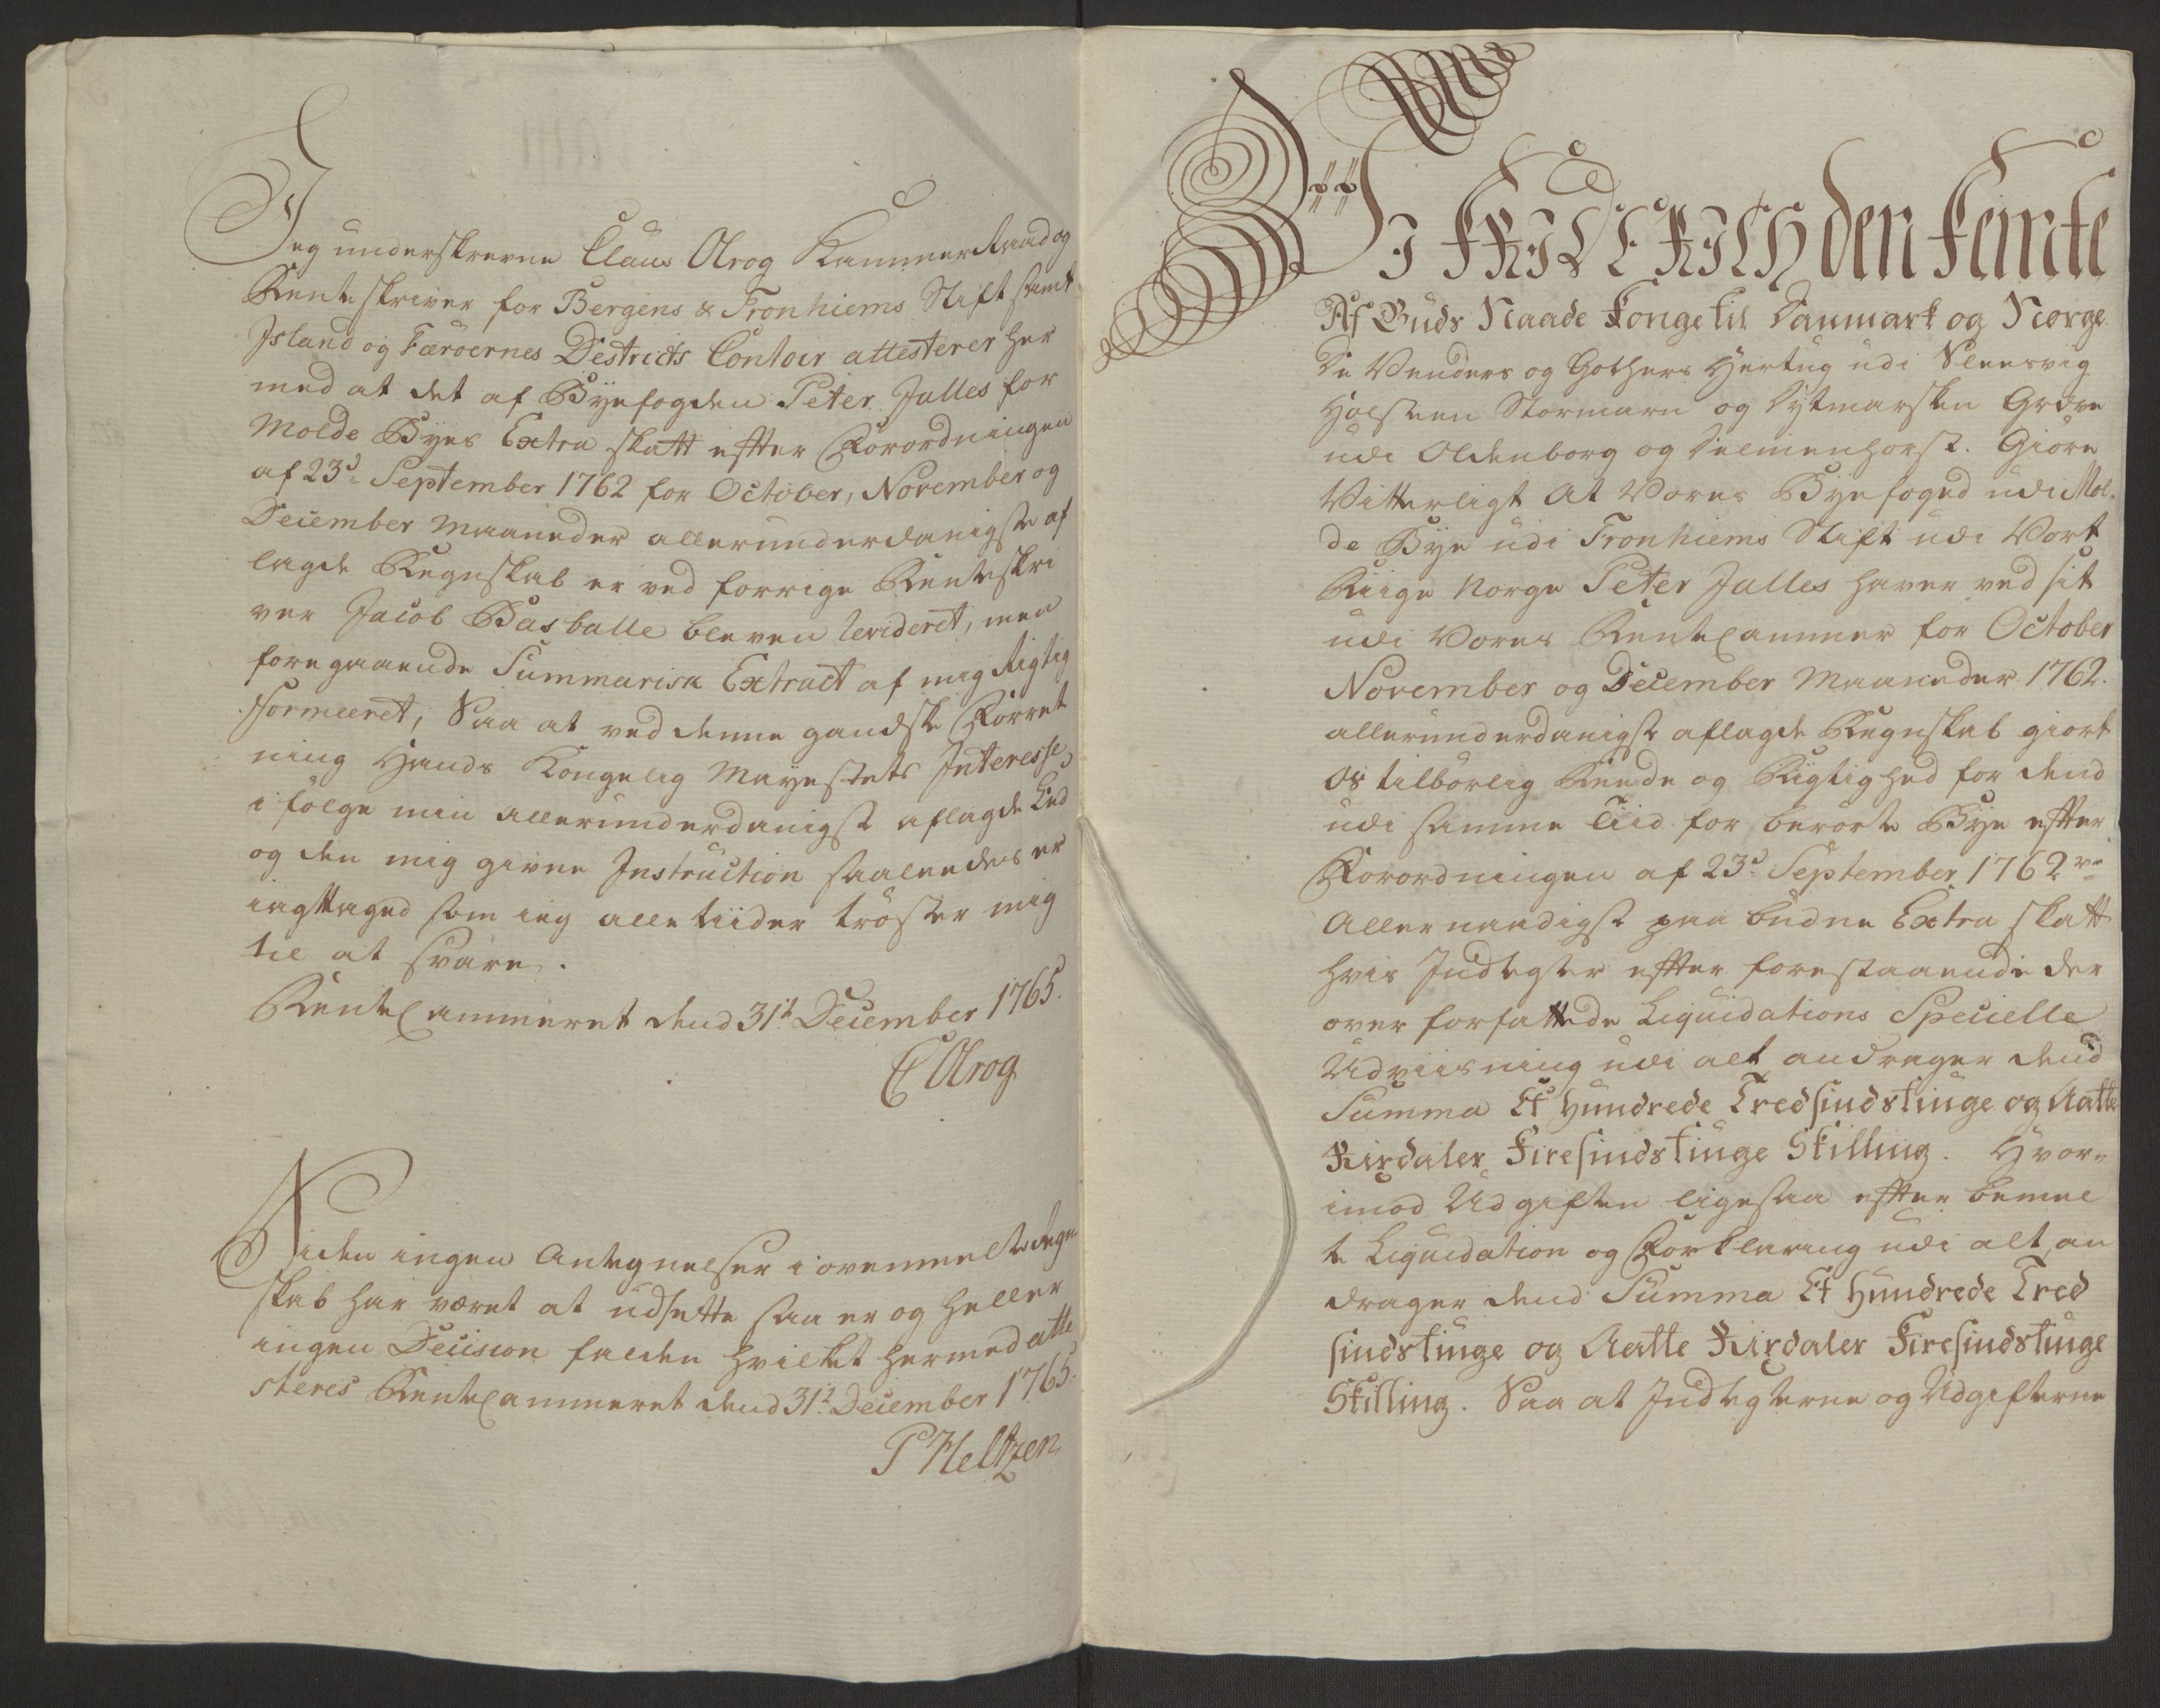 Jeg underskrevne Claus Olrog Kammer Raad og
Renteskriver for Bergens & Tronhiems Stift samt
Jsland og Færöernes Destricts Contoir attesterer her
med at det af Byefogden Peter Julles for
Molde Byes Extra skatt efter Forordningen
af 23d. September 1762 for October, November og
December Maaneder allerunderdanigste af
lagde Regnskab er ved forrige Renteskri
ver Jacob Basballe bleven Revideret, men
foregaaende Summarisk Extract af mig Rigtig
formeeret, Saa at ved denne gandske Forret
ning Hands Kongelig Mayestets Interesse,
i fölge min allerunderdanigst aflagde Eed
og den mig givne Instruction saaleedes er
iagttaged som ieg alle tiider tröster mig
til at svare.
RenteCammeret dend 31t. December 1765.
C Olrog
Siden ingen Antegnelser i ovenmelte Regn
skab har været at udsætte saa er og heller
ingen Decision falden hvilket hermed atte
steres RenteCammeret dend 31t. December 1765.
P Heltzen
Wi FRIDERICH den Femte
Af Guds Naade Konge til Danmark og Norge
De Venders og Gothers Hertug udi Sleesvig
Holsteen Stormarn og Dytmarsken Greve
udi Oldenborg og Delmenhorst. Giöre
Vitterligt at Vores Byefoged udi Mol-
de Bye udi Tronhiems Stift udi Vort
Riige Norge Peter Julles haver ved sit
udi Vores RenteCammer for October
November og December Maaneder 1762.
allerunderdanigst aflagde Regnskab giort
os tilbörlig Reede og Rigtighed for dend
udi samme Tiid for berörte Bye efter
Forordningen af 23d. September 1762ve
Allernaadigst paabudne Extra skatt
hvis Indtegter efter forestaaende der
over forfattede Liquidations Specielle
Udviisning udi alt andrager dend
Summa Et Hundrede Tredsindstiuge og Aatte
Rixdaler Firesindstiuge Skilling. Hvor-
imod Udgiften ligesaa efter bemel
te Liquidation og Forklaring udi alt an
drager dend Summa Et Hundrede Tred
sindstiuge og Aatte Rixdaler Firesindstiuge
Skilling. Saa at Indtegterne og Udgifterne